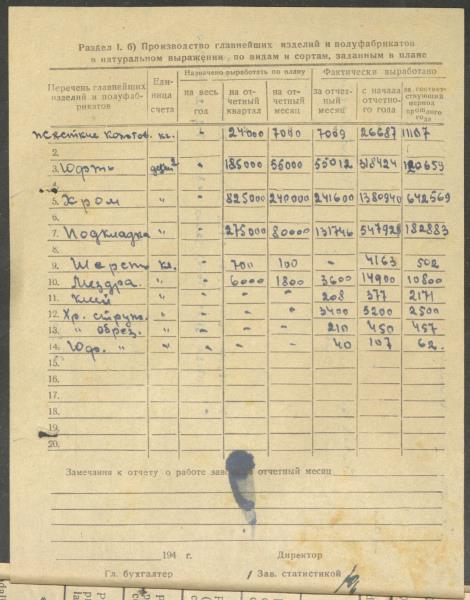 Раздел I. б) Производство главнейших изделий и полуфабрикатов
в натуральном выражении, по видам и сортам, заданным в плане
Перечень главнейших изделий и полуфабрикатов | Единица счета | Назначено выработать по плану | Фактически выработано
на весь год | на отчетный квартал | на отчетный месяц | за отчетный месяц | с начала отчетного года | за соответствующий период прошлого года
Жесткие кг. " 24000 7000 7009 26687 11107
2.
3. Юфть " 185000 55000 55012 318424 120659
5. Хром " " 825000 240000 241600 1380940 642569
7. Подкладка " " 275000 80000 131746 547928 182883
8.
9. Шерсть кг. " 700 100 " 4163 502
10. Мездра. " " 6000 1800 3600 14900 10800
11. Клей " " " " 208 377 2171
12. Хр. струж. " " " " 3400 3200 2500
13. " обрез. " " " " 210 450 457
14. Юф. " " " " " 40 107 62.
15.
16.
17.
18.
19.
20.
Замечания к отчету о работе за отчетный месяц
194 г. Директор
Гл. бухгалтер Зав. статистикой